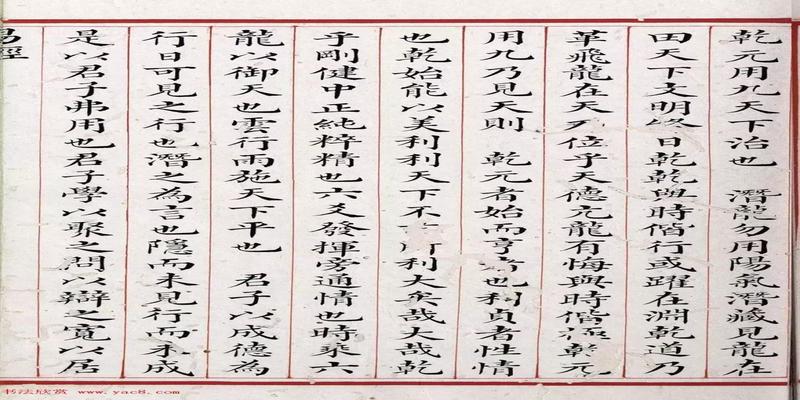 乾元用九天下治也　潛龍勿用陽氣潛藏見龍在
田天下文明終日乾乾與時偕行或躍在淵乾道乃
革飛龍在天乃位乎天德亢龍有悔與時偕極乾元
用九乃見天則　乾元者始而亨者也利貞者性情
也乾始能以美利利天下不所利大矣哉大哉乾
乎剛健中正純粹精也六爻發揮旁通情也時乘六
龍以御天也雲行雨施天下平也　君子以成德為
行日可見之行也潛之為言也隱而未見行而未成
是以君子弗用也君子學以聚之問以辯之寬以居
易經
书法欣赏 www.yac8.com